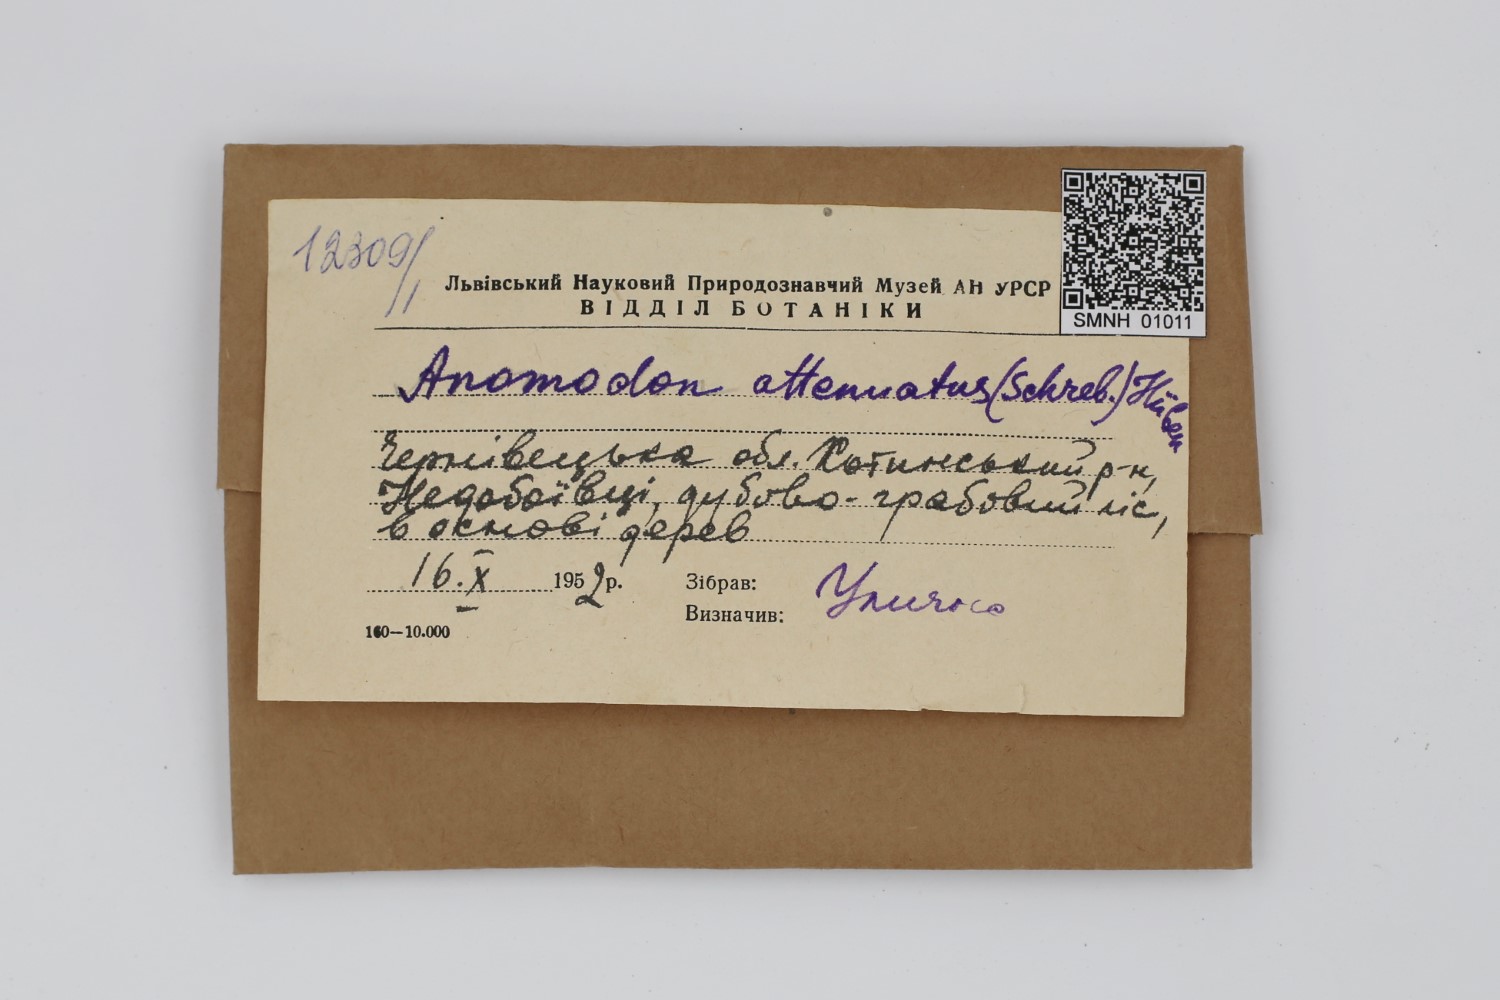 12309/
Львівський Науковий Природознавчий Музей АН УРСР
ВІДДІЛ БОТАНІКИ
SMNH 01011
Anomodon attenuatus (Schreb.) Hüben
Чернівецька обл. Хотинський р-н,
Недобоївці, дубово-грабовий ліс,
в основі дерев
16.X 1952 р.
Зібрав:
Визначив: Уличко
160—10.000